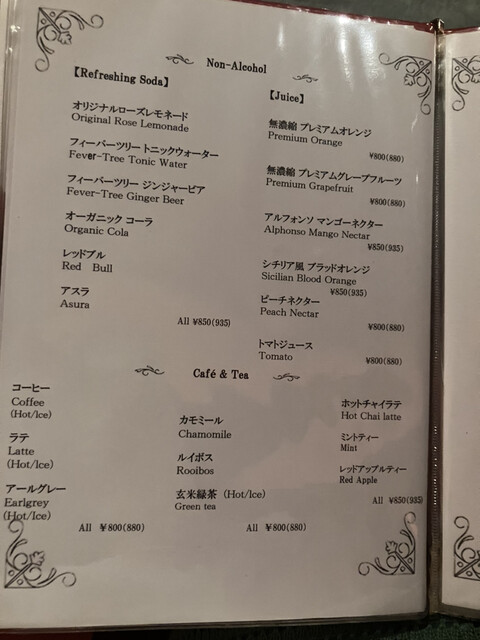 Non-Alcohol
【Refreshing Soda】
オリジナルローズレモネード
Original Rose Lemonade
フィーバーツリー トニックウォーター
Fever-Tree Tonic Water
フィーバーツリー ジンジャービア
Fever-Tree Ginger Beer
オーガニック コーラ
Organic Cola
レッドブル
Red Bull
アスラ
Asura
All ¥850(935)
【Juice】
無濃縮 プレミアムオレンジ
Premium Orange
¥800(880)
無濃縮 プレミアムグレープフルーツ
Premium Grapefruit
¥800(880)
アルフォンソ マンゴーネクター
Alphonso Mango Nectar
¥850(935)
シチリア風 ブラッドオレンジ
Sicilian Blood Orange
¥850(935)
ピーチネクター
Peach Nectar
¥800(880)
トマトジュース
Tomato
¥800(880)
Café & Tea
コーヒー
Coffee
(Hot/Ice)
ラテ
Latte
(Hot/Ice)
アールグレー
Earlgrey
(Hot/Ice)
All ¥800(880)
カモミール
Chamomile
ルイボス
Rooibos
玄米緑茶 (Hot/Ice)
Green tea
All ¥800(880)
ホットチャイラテ
Hot Chai latte
ミントティー
Mint
レッドアップルティー
Red Apple
All ¥850(935)